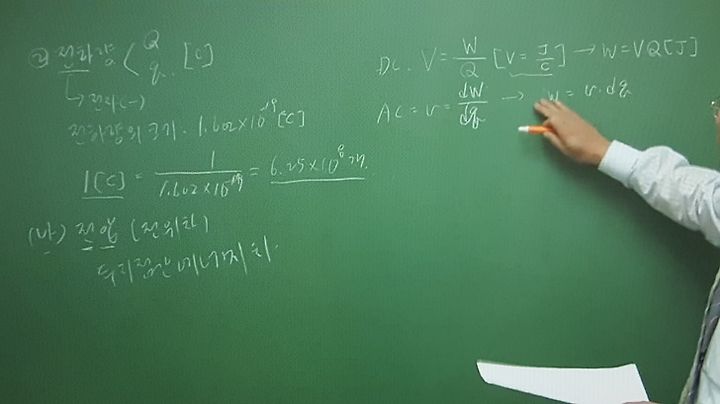 ② 전하량 < Q q. [C]
↳ 전자(-)
전하량의 크기. 1.602×10⁻¹⁹ [C]
1[C] = 1 / 1.602×10⁻¹⁹ = 6.25×10¹⁸ 개.
(나) 전압 (전위차)
두 지점간 에너지 차.
DC. V = W/Q [V = J/C] → W = VQ[J]
AC = v = dW/dq → w = v·dq